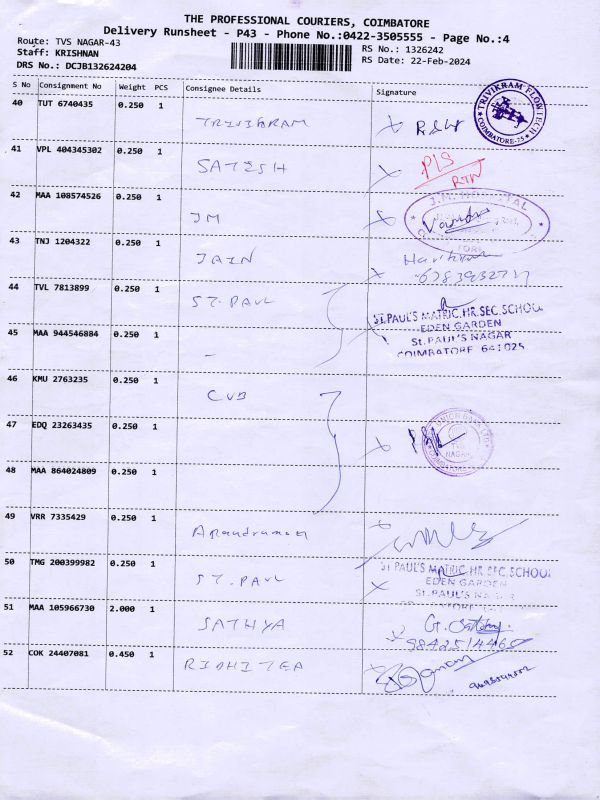 THE PROFESSIONAL COURIERS, COIMBATORE
Delivery Runsheet - P43 - Phone No.:0422-3505555 - Page No.:4
Route: TVS NAGAR-43
Staff: KRISHNAN
DRS No.: DCJB132624204
RS No.: 1326242
RS Date: 22-Feb-2024
S No Consignment No Weight PCS Consignee Details Signature
40 TUT 6740435 0.250 1 TRIVIKRAM
TRIVIKRAM FLOWTECH COIMBATORE-25
41 VPL 404345302 0.250 1 SATESH P/S RTN
42 MAA 108574526 0.250 1 JM
J.M. HOSPITAL
43 TNJ 1204322 0.250 1 JAIN
44 TVL 7813899 0.250 1 ST. PAUL
St.PAUL'S MATRIC.HR.SEC.SCHOOL
EDEN GARDEN
St.PAUL'S NAGAR
COIMBATORE 641025
45 MAA 944546884 0.250 1 -
46 KMU 2763235 0.250 1 CUB
47 EDQ 23263435 0.250 1
48 MAA 864024809 0.250 1
49 VRR 7335429 0.250 1
50 TMG 200399982 0.250 1 ST. PAUL
St PAUL'S MATRIC.HR.SEC.SCHOOL
EDEN GARDEN
St.PAUL'S
51 MAA 105966730 2.000 1 SATHYA
9842514460
52 COK 24407081 0.450 1 RIDHI TEA